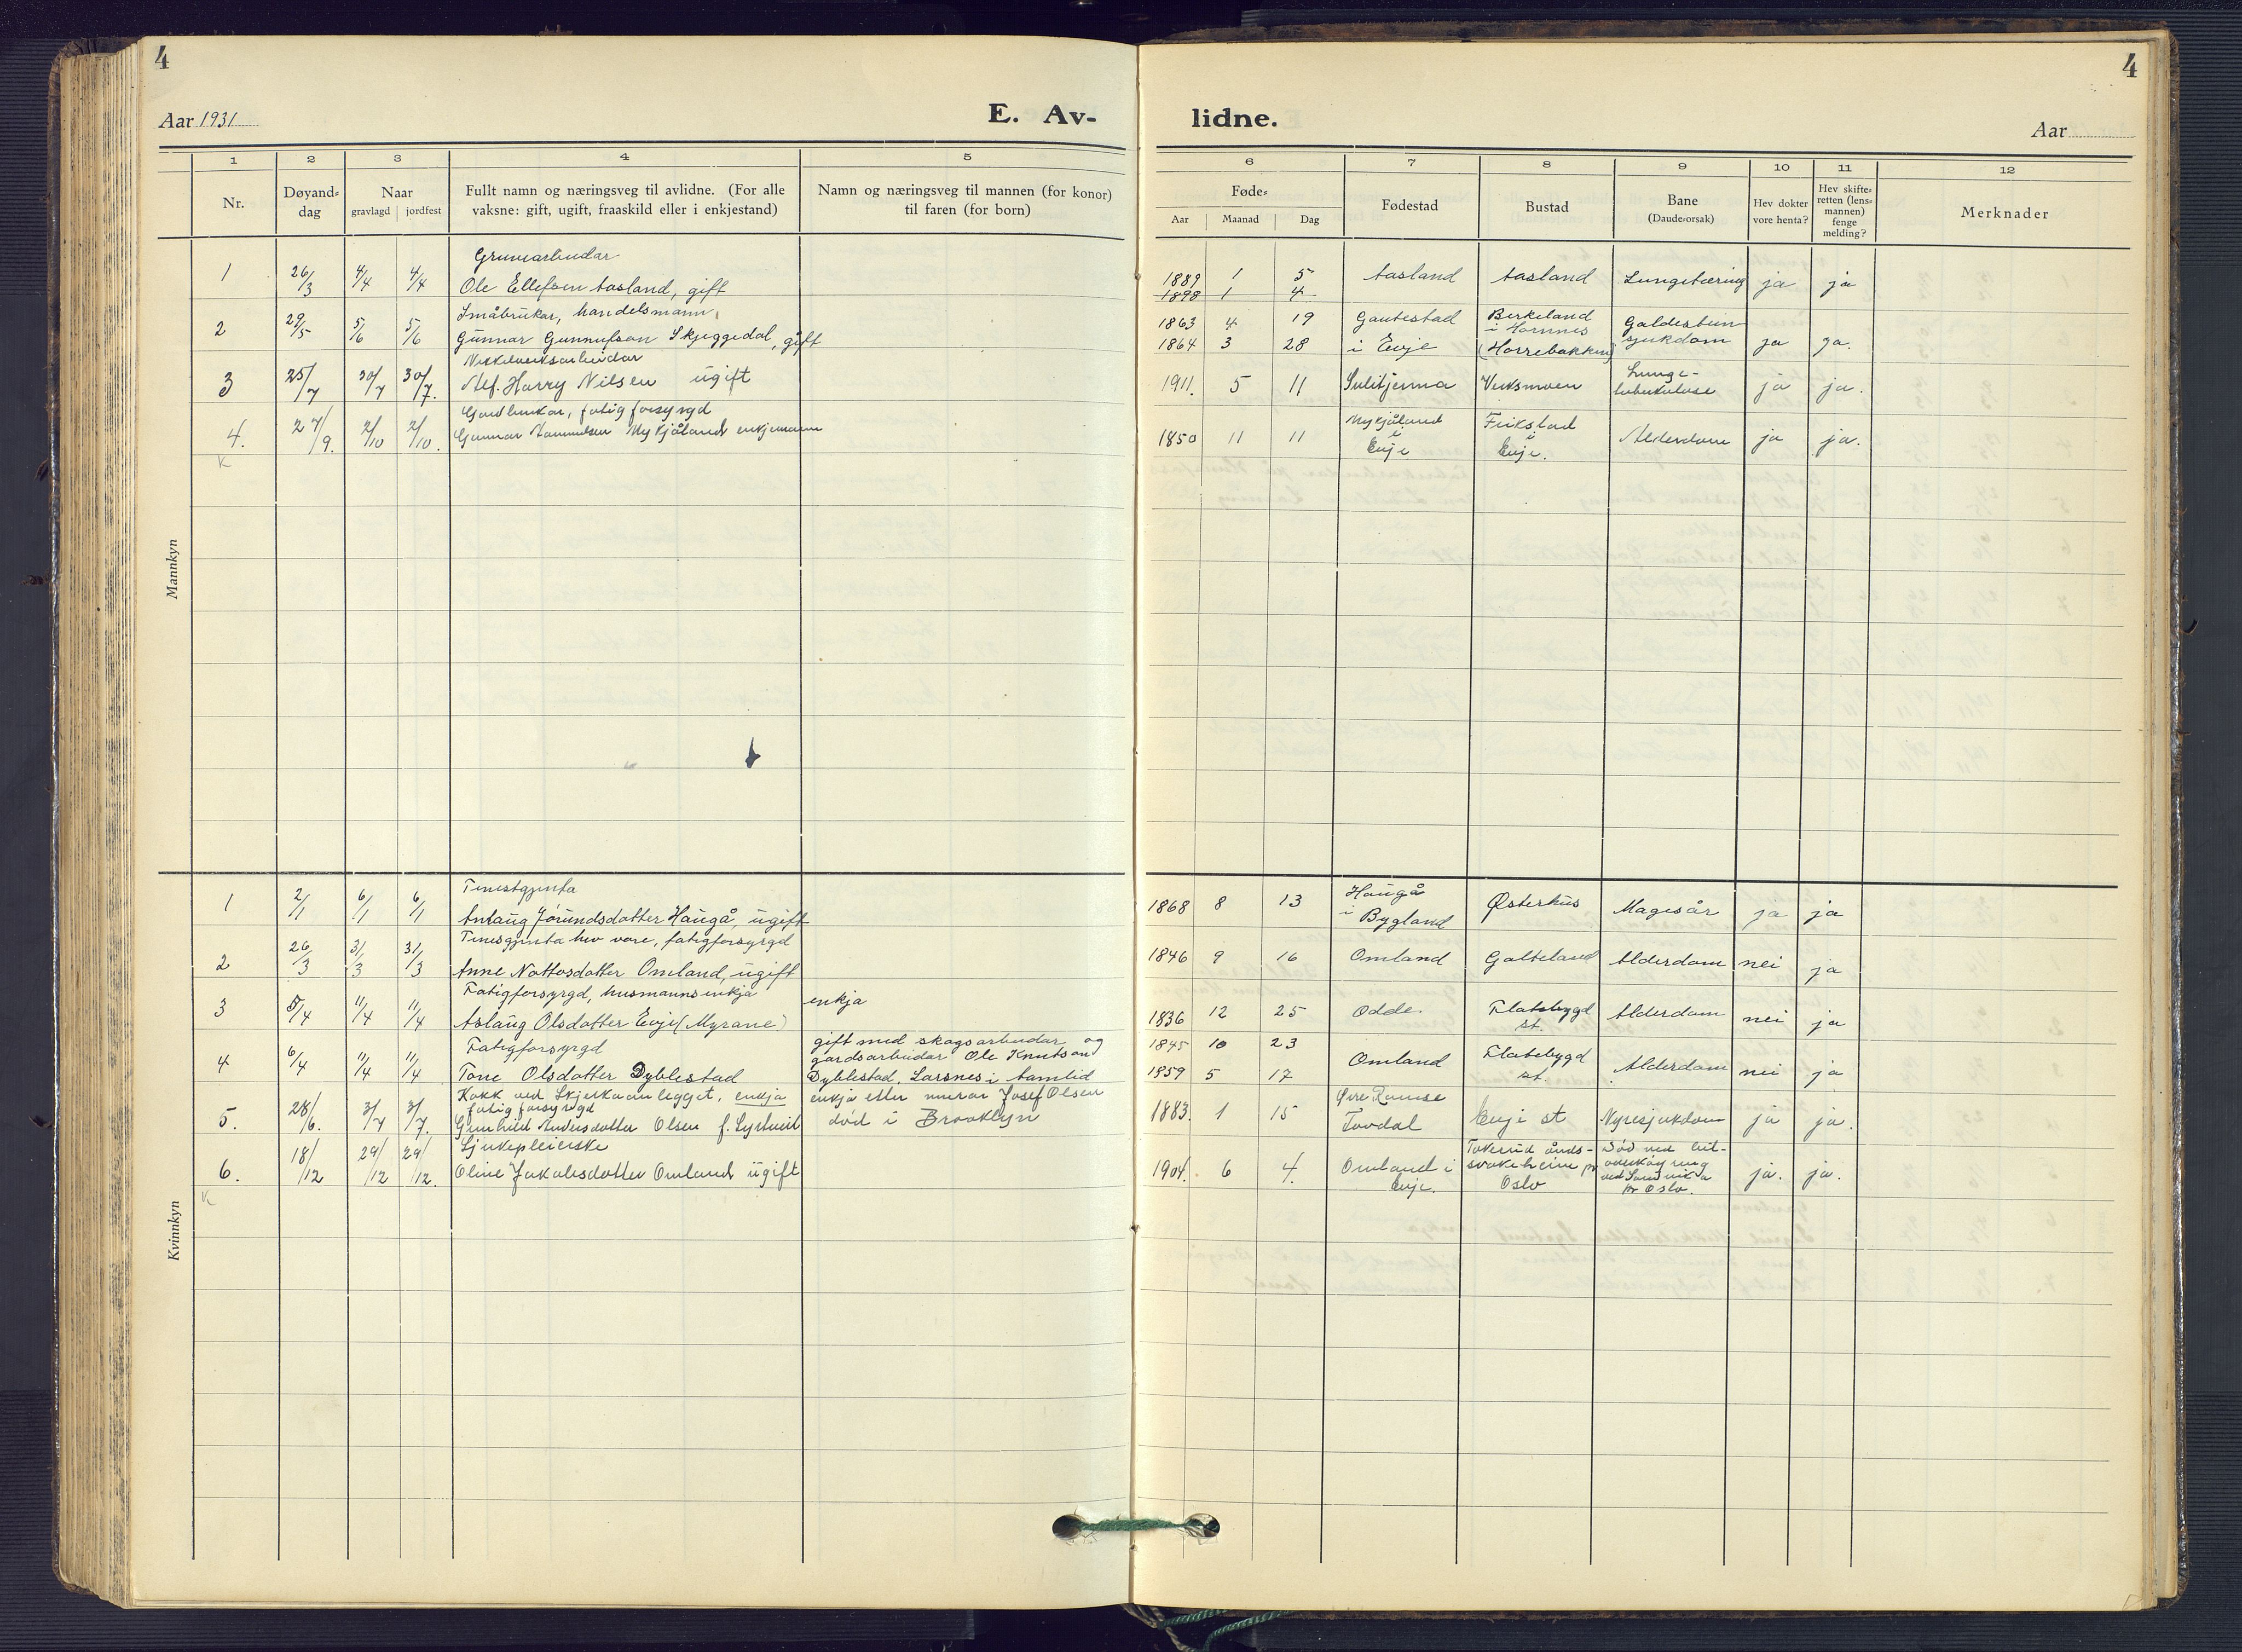 4
4
Aar 1931
E. Av-
lidne.
Aar
1 2 3 4 5
6 7 8 9 10 11 12
Nr.
Døyand-
dag
Naar
gravlagd
jordfest
Fullt namn og næringsveg til avlidne. (For alle
vaksne: gift, ugift, fraaskild eller i enkjestand)
Namn og næringsveg til mannen (for konor)
til faren (for born)
Føde-
Aar
Maanad
Dag
Fødestad
Bustad
Bane
(Daude-orsak)
Hev dokter
vore henta?
Hev skifte-
retten (lens-
mannen)
fenge
melding?
Merknader
Mannkyn
Gruvearbeidar
1 26/3 4/4 4/4 Ole Ellefsen Aasland, gift 1889 1 5 Aasland Aasland Lungetæring ja ja
1898 1 4
Småbrukar, handelsmann,
2 29/5 5/6 5/6 Gunnar Gunnufson Skjeggedal, gift
1863 4 19 Gautestad Birkeland Galdestein
i Hornnes
1864 3 28 i Evje (Horrebakken) sjukdom ja ja.
Nikkelverksarbeidar
3 25/7 30/7 30/7. Alf. Harry Nilsen ugift 1911. 5 11 Sulitjerma Verksmoen Lunge-
tuberkulose ja ja.
Gardbrukar, fatigforsyrgd
4. 27/9. 2/10 2/10. Gunnar Mykjåland enkjemann
1850 11 11 Mykjåland
i
Evje
Frikstad
i
Evje.
Alderdom ja ja.
K
Kvinnkyn
Tenestgjenta
1 2/1 6/1 6/1 Anlaug Jørundsdotter Haugå, ugift 1868 8 13 Haugå
i Bygland Østerhus Magesår ja ja
Tenesgjenta hev vore, fatigforsyrgd
2 26/3 31/3 31/3 Anne Nottosdotter Omland, ugift 1846 9 16 Omland Galteland Alderdom nei ja
Fatigforsyrgd, husmannsenkja enkja
3 5/4 11/4 11/4 Aslaug Olsdotter Evje (Myrane) 1836 12 25 Odde. Flatebygd
st. Alderdom nei ja
Fatigforsyrgd
4 6/4 11/4 11/4 Tone Olsdotter Dyblestad
gift med skogsarbeidar og
gardsarbeidar Ole Knutson
Dyblestad, Larsnes i Aamlid
1845 10 23
1859 5 17 Omland Flatebygd
st. Alderdom nei ja
Kokk ved legget, enkja
fatigforsyrgd
5. 28/6. 3/7 3/7. Gunhild Andersdotter Olsen f.
enkja etter murar Josef Olsen
død i Brooklyn
1883. 1 15 Øvre Ramse
Tovdal Evje st Nyresjukdom ja ja.
Sjukepleierske
6. 18/12 29/12 29/12. Oline Jakobsdotter Omland ugift
1904. 6 4. Omland i
Evje.
Tokerud ånds-
svakeheim pr
Oslo
Død ved bil-
overkøyring
ved Sandvika
pr Oslo.
ja. ja.
K